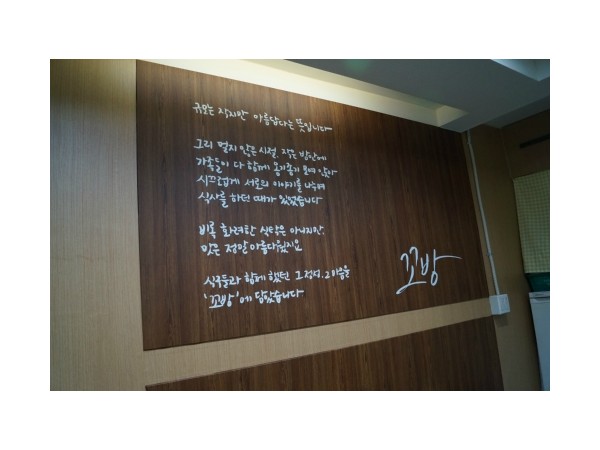 규모는 작지만 아름답다는 뜻입니다
그리 멀지 않은 시절, 작은 방안에
가족들이 다 함께 옹기종기 모여 앉아
시끄럽게 서로의 이야기를 나누며
식사를 하던 때가 있었습니다
비록 화려한 식탁은 아니지만,
맛은 정말 아름다웠지요
식구들과 함께 했던 그 정성, 그 마음을
'꼬방'에 담았습니다
꼬방